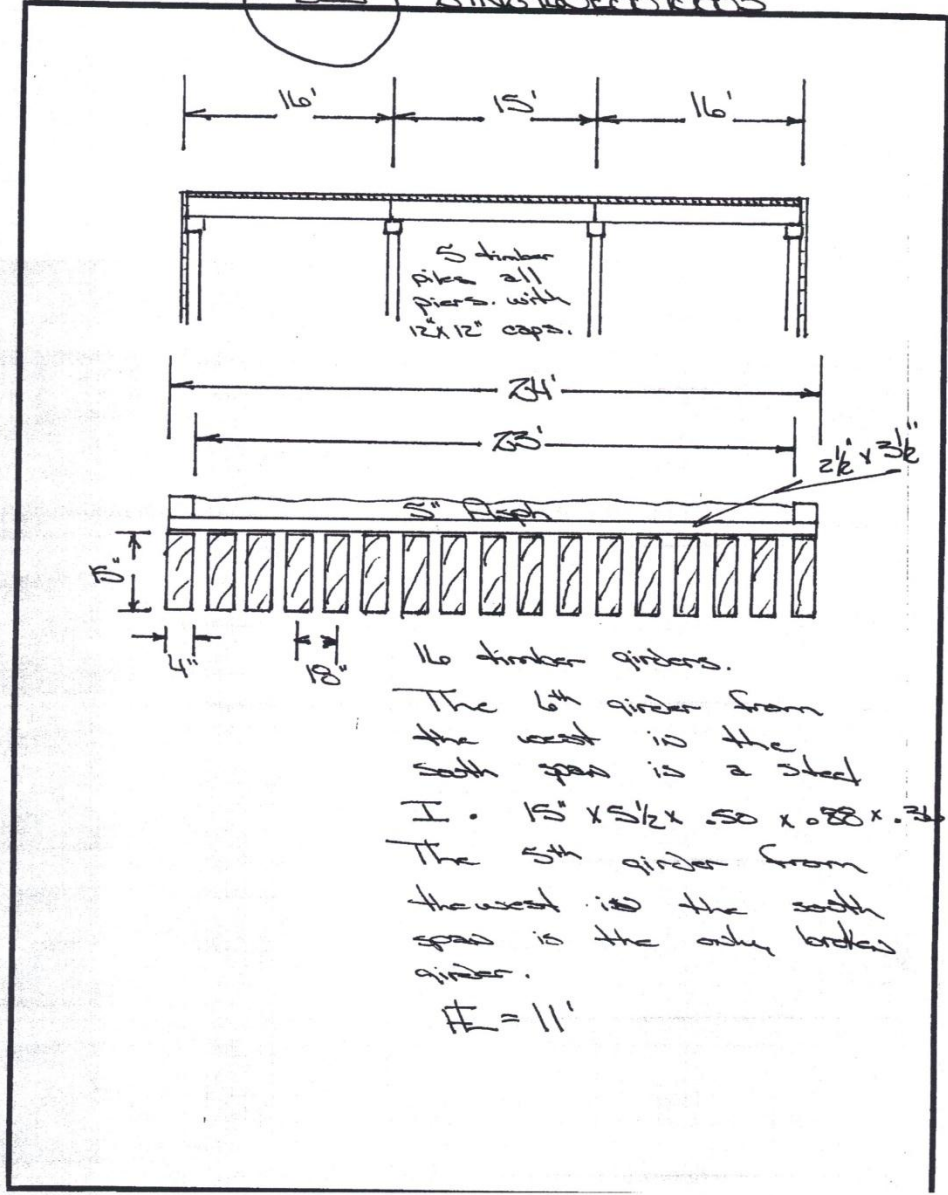 16' 15' 16'
5 timber
piles all
piers. with
12"x 12" caps.
24'
23'
2½" x 3½"
5" Asph
4"
18"
16 timber girders.
The 6th girder from
the west in the
south span is a steel
I. 15" x 5½ x .50 x .88 x .36
The 5th girder from
the west in the south
span is the only broken
girder.
= 11'